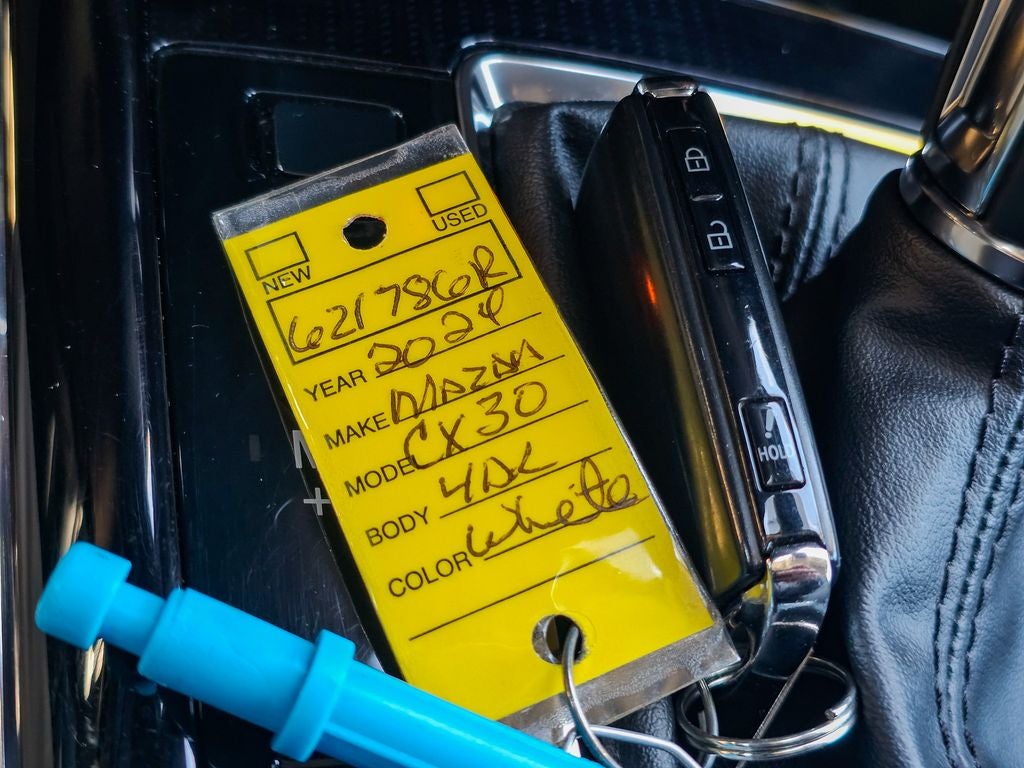 NEW USED
621786R
YEAR 2024
MAKE Mazda
MODEL CX30
BODY 4DR
COLOR White
HOLD
M
+